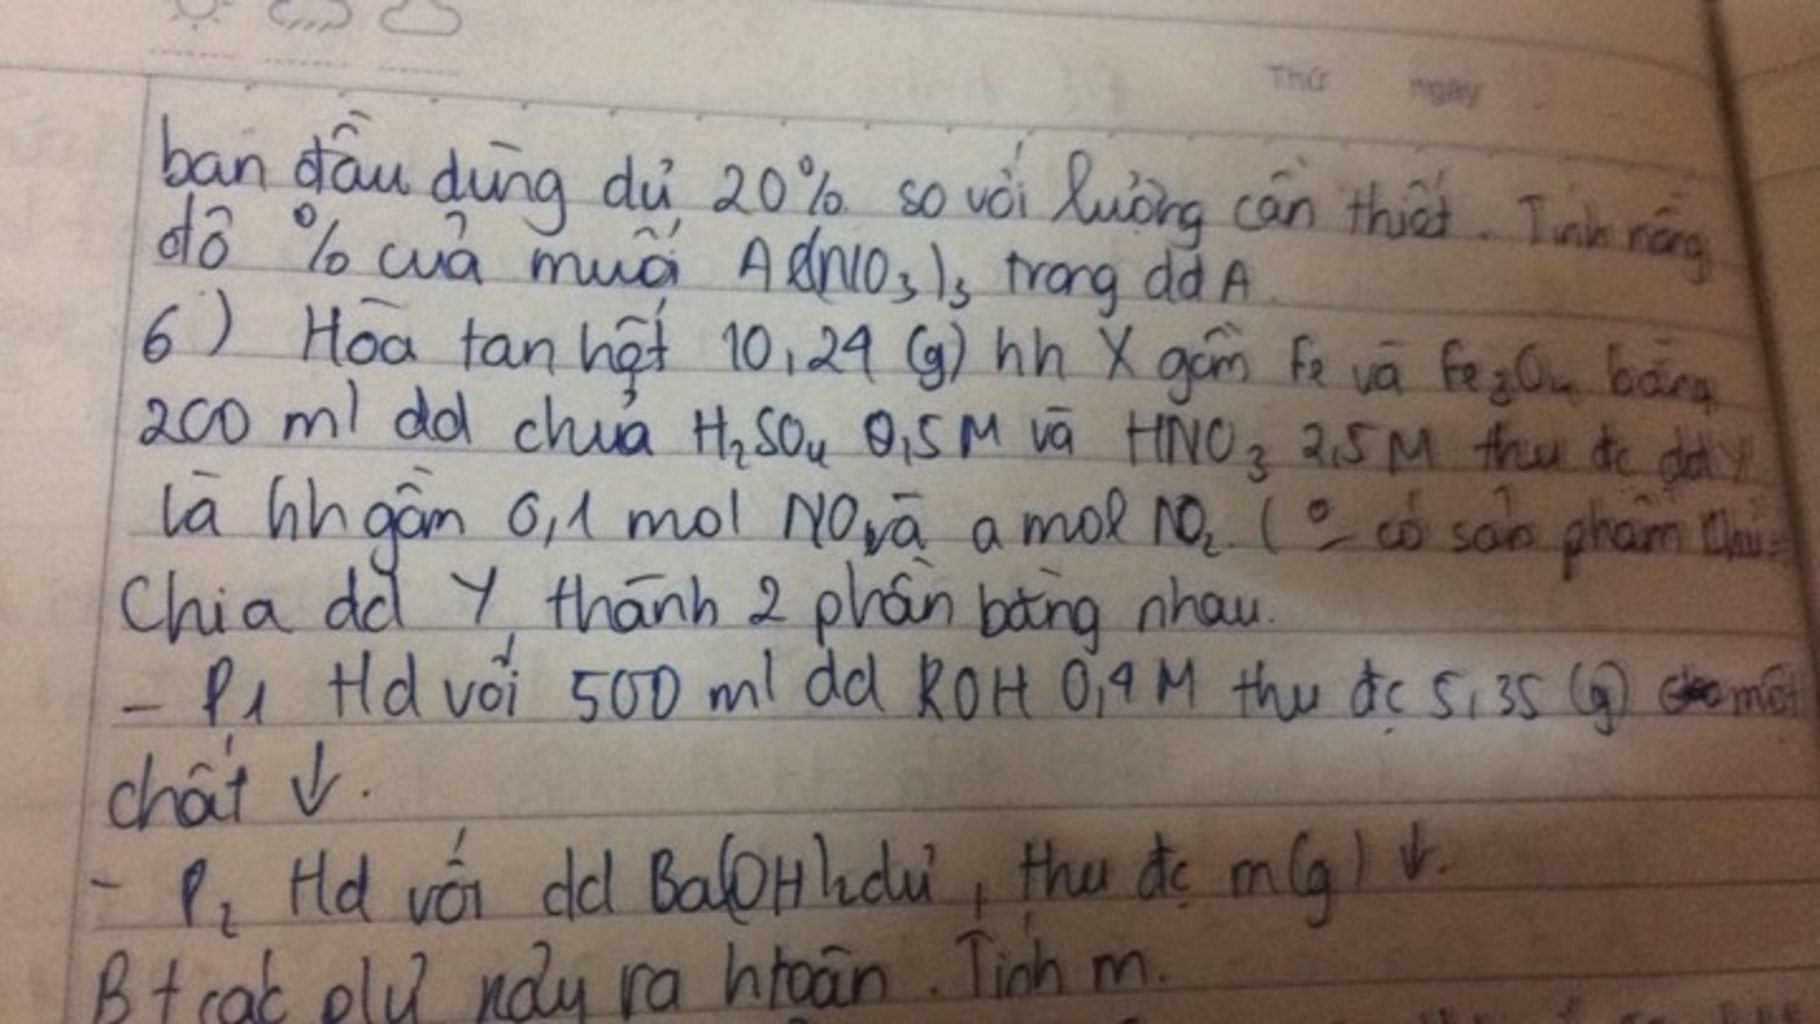 Thứ ngày
ban đầu dùng dư 20% so với lượng cần thiết. Tính nồng
độ % của muối Al(NO3)3 trong dd A
6) Hòa tan hết 10,24 (g) hh X gồm Fe và Fe3O4 bằng
200 ml dd chứa H2SO4 0,5M và HNO3 2,5M thu đc dd Y
là hh gồm 0,1 mol NO và a mol NO2. ( có sản phẩm
Chia dd Y thành 2 phần bằng nhau.
- P1 td với 500 ml dd KOH 0,4M thu đc 5,35 (g) một
chất ↓.
- P2 td với dd Ba(OH)2 dư, thu đc m(g) ↓.
Bt các pư xảy ra htoàn. Tính m.